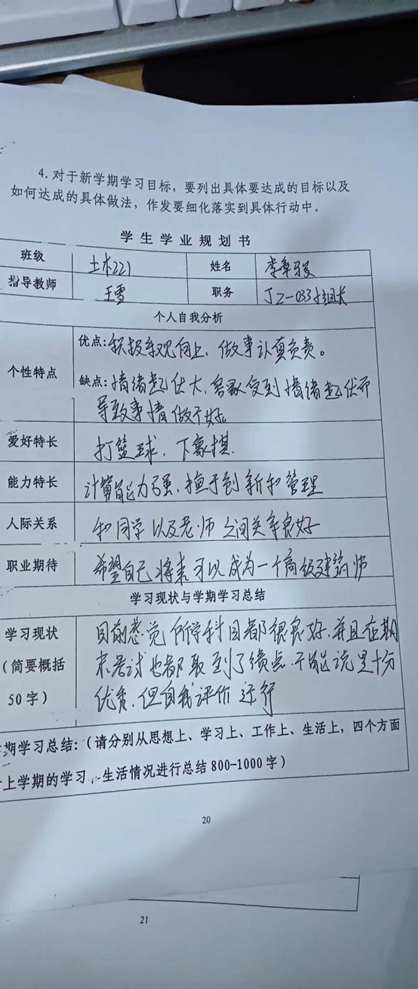 4.对于新学期学习目标，要列出具体要达成的目标以及
如何达成的具体做法，作发要细化落实到具体行动中。
学生学业规划书
班级 土木221 姓名 李
指导教师 王雪 职务 J2-033组长
个人自我分析
个性特点 优点:积极乐观向上，做事认真负责。
缺点:情绪起伏大，容易受到情绪起伏而
导致事情做不好。
爱好特长 打篮球，下象棋.
能力特长 计算能力强，擅于创新和管理
人际关系 和同学以及老师之间关系良好
职业期待 希望自己将来可以成为一个高级建筑师
学习现状与学期学习总结
学习现状
（简要概括
50字）
目前感觉所学科目都很良好，并且在期
末考试也都取到了绩点，不能说是十分
优秀，但自我评价还行
期学习总结:（请分别从思想上、学习上、工作上、生活上，四个方面
上学期的学习、生活情况进行总结800-1000字）
20
21